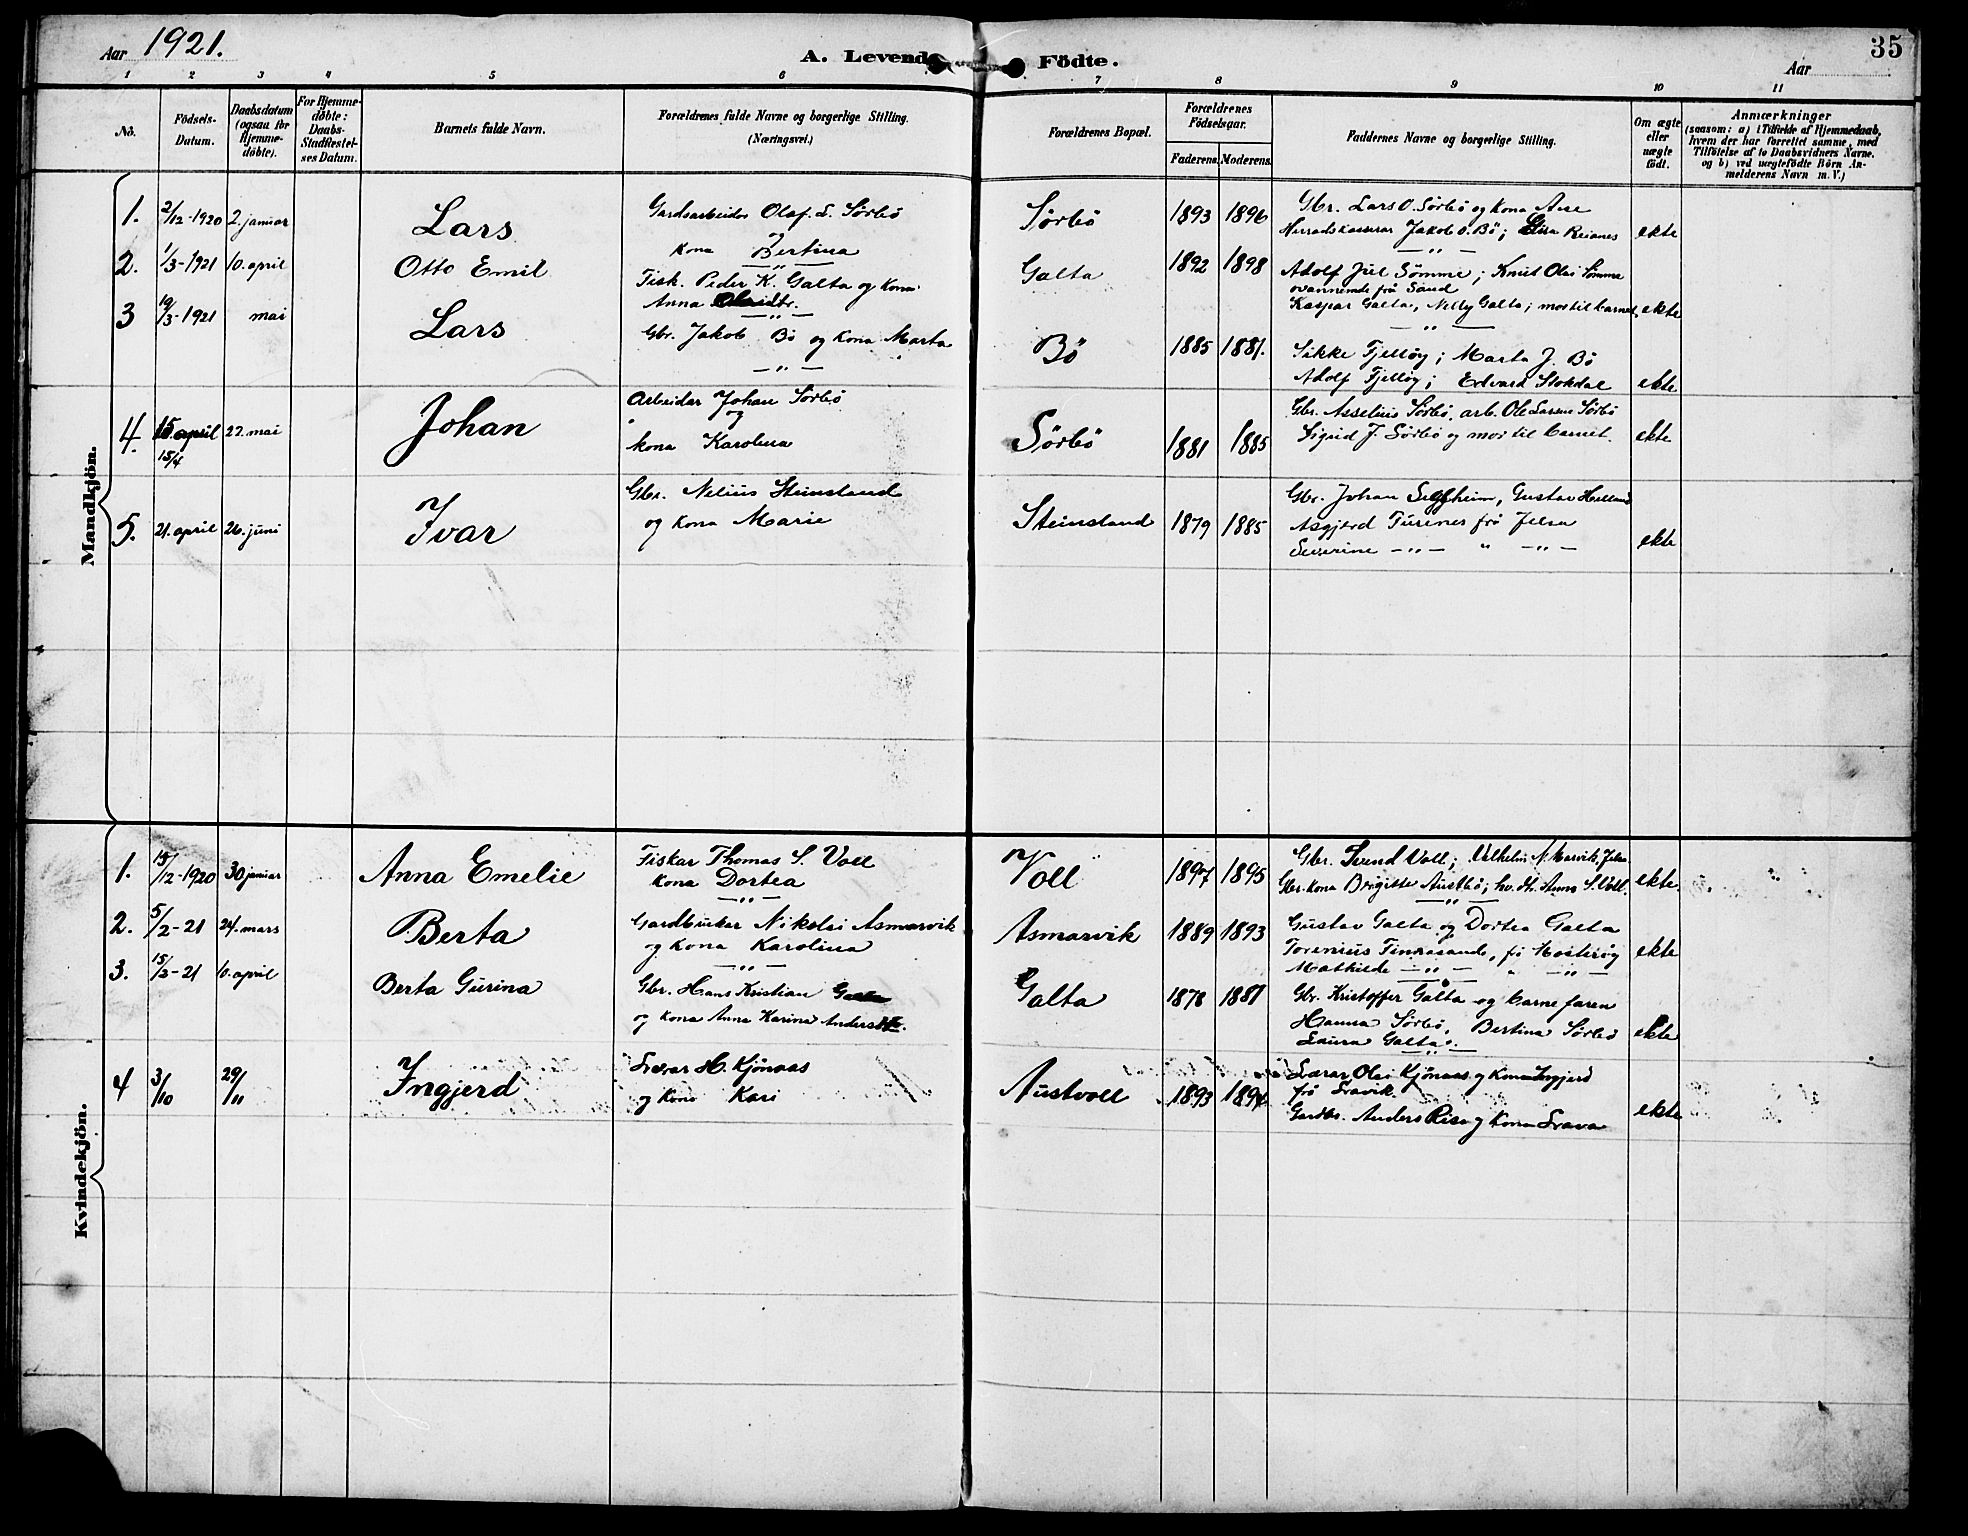 Aar 1921.
A. Levende Födte.
35
Aar
1 2 3 4 5 6 7 8 9 10 11
No.
Födsels-Datum.
Daabsdatum (ogsaa for Hjemme-döbte).
For Hjemme-döbte: Daabs-Stadfæstel-ses Datum.
Barnets fulde Navn.
Forældrenes fulde Navne og borgerlige Stilling. (Næringsvei.)
Forældrenes Bopæl.
Forældrenes Födselsaar.
Faderens. Moderens.
Faddernes Navne og borgerlige Stilling.
Om ægte eller uægte födt.
Anmærkninger (saasom: a) i Tilfælde af Hjemmedaab, hvem der har forrettet samme, med Tilföielse af to Daabsvidners Navne, og b) ved uægtefödte Börn An-melderens Navn m. V.)
Mandkjön.
1. 2/12-1920 2. januar Lars Gardsarbeider Olaf L. Sørbö og kona Bertina Sørbö 1893 1896 Gbr. Lars O. Sørbö og kona Ane
Herradskasserar Jakob O. Bö; Elisa Reianes ekte
2. 1/3-1921 10. april Otto Emil Fisk. Peder K. Galta og kona Anna Galta 1892 1898 Adolf Juel Sömme; Knut Olai Sömme
ovannemde frå Sand
Kaspar Galta, Nelly Galta; mor til barnet. ekte
3 19/3-1921 mai Lars Gbr. Jakob Bö og kona Marta Bö 1885 1881. Sikke Fjellöy; Marta J. Bö
Adolf Fjellöy; Edvard Stokdal ekte
4. 15. april 15/4 22. mai Johan Arbeidar Johan Sörbö og kona Karolina Sörbö 1881 1885 Gbr. Asselius Sörbö, arb. Ole Larsen Sörbö
Sigrid J. Sörbö og mor til barnet. ekte
5. 21. april 26. juni Ivar Gbr. Nelius Steinsland og kona Marie Steinsland 1879 1885 Gbr. Johan, Gustav
Asgjerd frå Jelsa
Severine — „ — „ — „ — ekte
Kvindekjön.
1. 15/12-1920 30 januar Anna Emelie Fiskar Thomas S. Voll kona Dortea Voll 1897 1895 Gbr. Svend Voll; Vilhelm N. Marvik, Jelsa
Gbr. kona Brigitte Austbö; Anna S. Voll. ekte
2. 5/2-21 24. mars Berta Gardbrukar Nikolai Asmarvik og kona Karolina Asmarvik 1889 1893 Gustav Galta og Dortea Galta
Torenius Finnasand, frå Mosteröy
Mathilde — „ — „ — „ — ekte
3. 15/2-21 10. april Berta Gurina Gbr. Hans Kristian Galta og kona Anna Karina Galta 1878 1881 Gbr. Kristoffer Galta og barnefaren
Hanna Sörbö, Bertina Sörbö
Laura Galta. ekte
4 3/10 29/11 Ingjerd Lærar H. Kjönaas og kona Kari Austvoll 1893 1894 Lærar Olai Kjönaas og kona Ingjerd
frå
Gardbr. Anders Risa og kona ekte